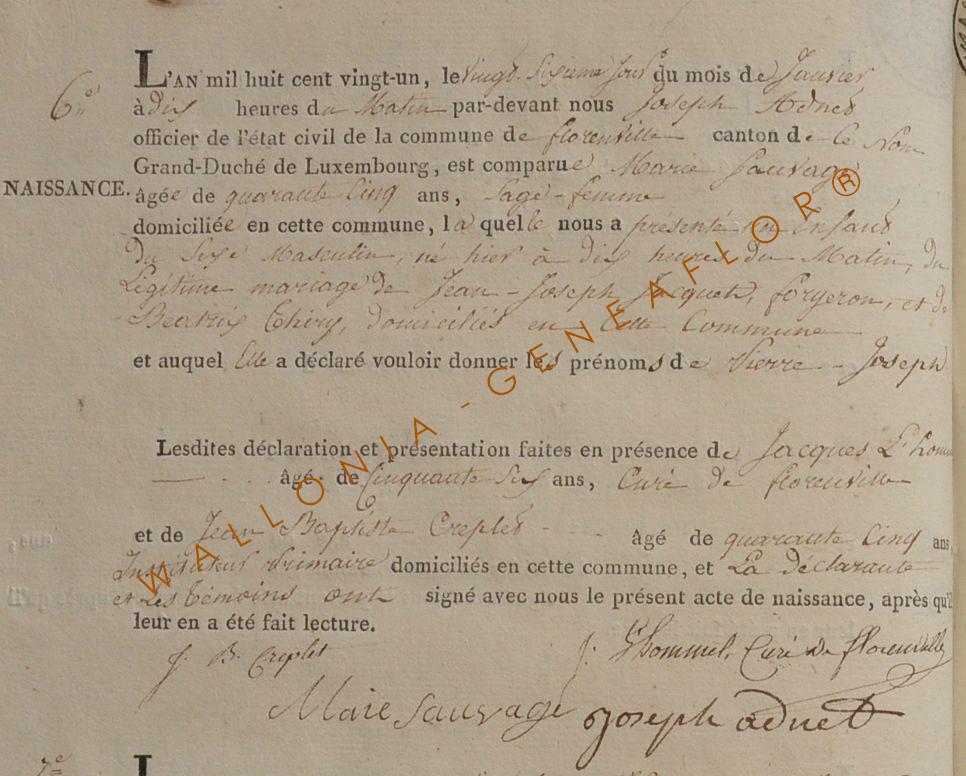 L'AN mil huit cent vingt-un, le vingt Sixieme Jour du mois de Janvier
6e
à dix heures du Matin par-devant nous Joseph Adnet
officier de l'état civil de la commune de florenville canton de Ce Nom
Grand-Duché de Luxembourg, est comparue Marie Sauvage
NAISSANCE.
âgée de quarante Cinq ans, Sage-femme
domiciliée en cette commune, la quelle nous a présenté un Enfant
Du Sexe Masculin, né hier à dix heures du Matin, du
Légitime mariage de Jean-Joseph Jacquet, forgeron, et de
Beatrix Thiry, domiciliés en Cette Commune
et auquel Elle a déclaré vouloir donner les prénoms de Pierre-Joseph
Lesdites déclaration et présentation faites en présence de Jacques L'hommel
âgé de Cinquante Six ans, Curé de florenville
et de Jean Baptiste Creplet âgé de quarante Cinq ans
Instituteur Primaire domiciliés en cette commune, et La déclarante
et Les témoins ont signé avec nous le présent acte de naissance, après qu'il
leur en a été fait lecture.
J. B. Creplet J. L'hommel, Curé de florenville
Marie Sauvage Joseph adnet
7e
L
WALLONIA-GENEAFLOR®